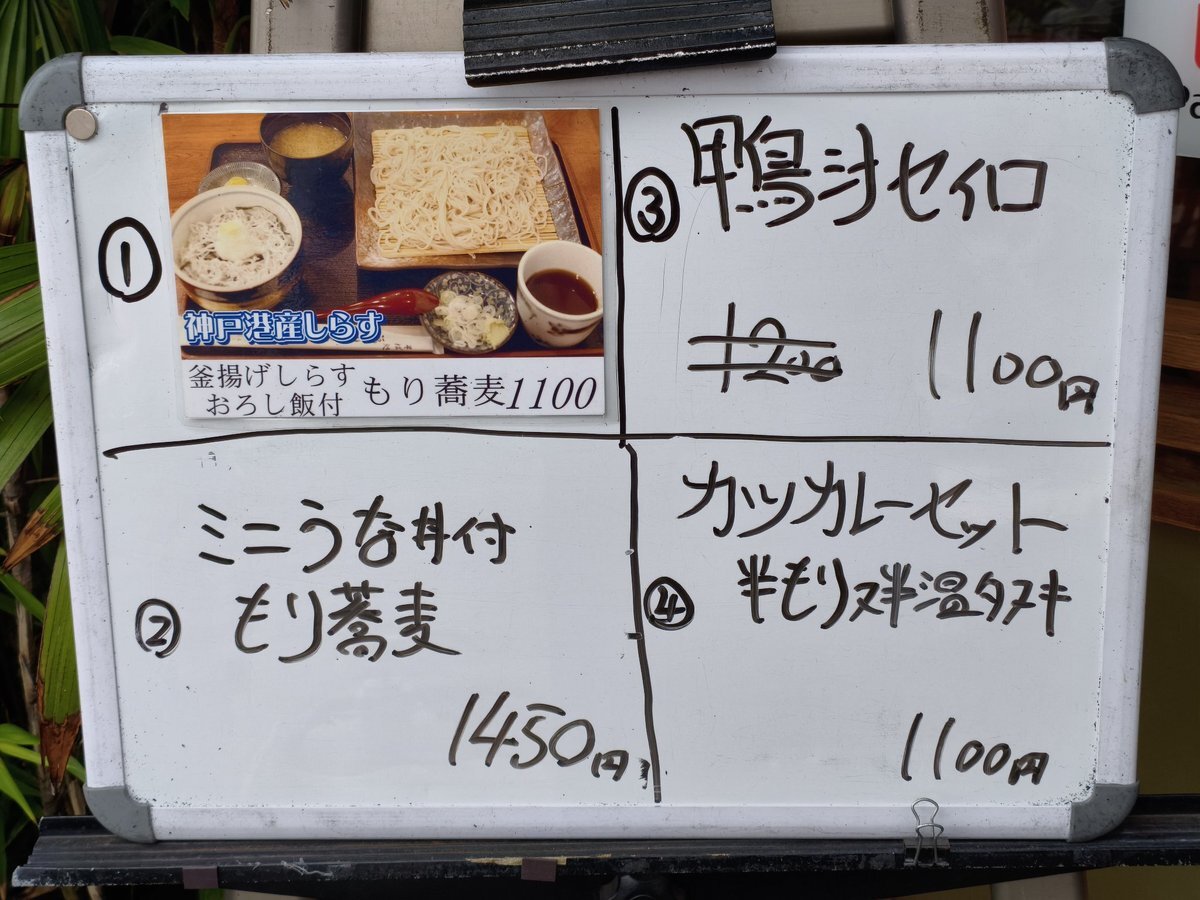 ①
神戸港産しらす
釜揚げしらす
おろし飯付
もり蕎麦1100
②
ミニうな丼付
もり蕎麦
1450円
③
鴨汁セイロ
1200 1100円
カツカレーセット
④
半もり又半温タヌキ
1100円